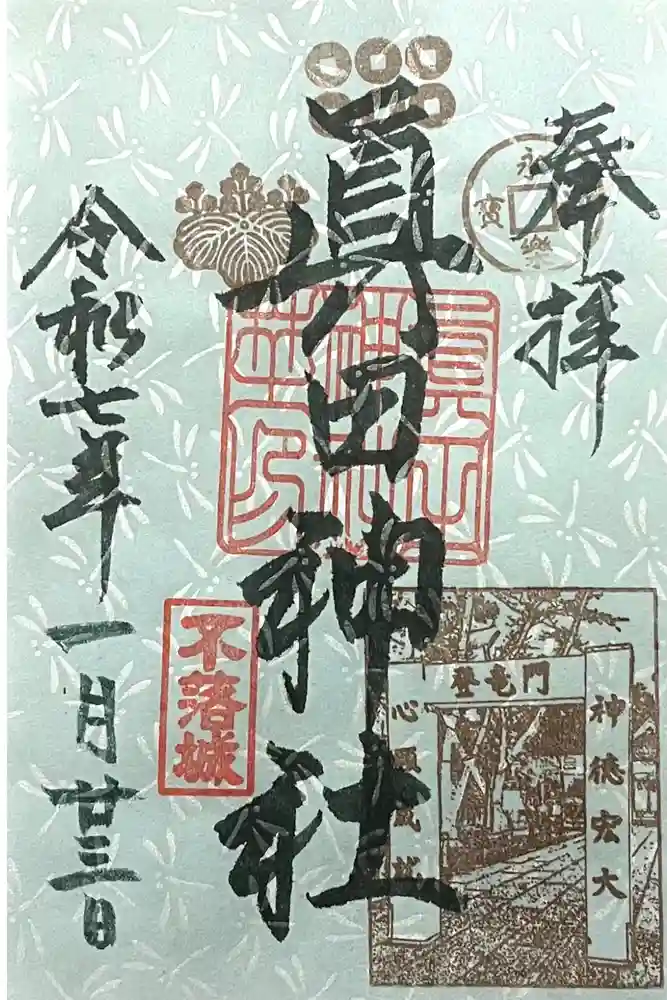 奉拝
永樂
寳
眞田神社
眞田神社之印
不落城
登竜門
神徳宏大
心願成就
令和七年
一月廿三日